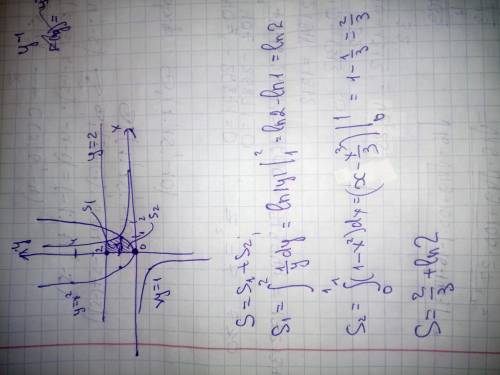 y=2
x
y
S₁
S₂
y=x²
xy=1
2
1
0
1
2
4
S=S₁+S₂;
S₁=∫₁²(1/y)dy=ln|y||₁²=ln2-ln1=ln2
S₂=∫₀¹(1-x²)dx=(x-x³/3)|₀¹=1-1/3=2/3
S=2/3+ln2